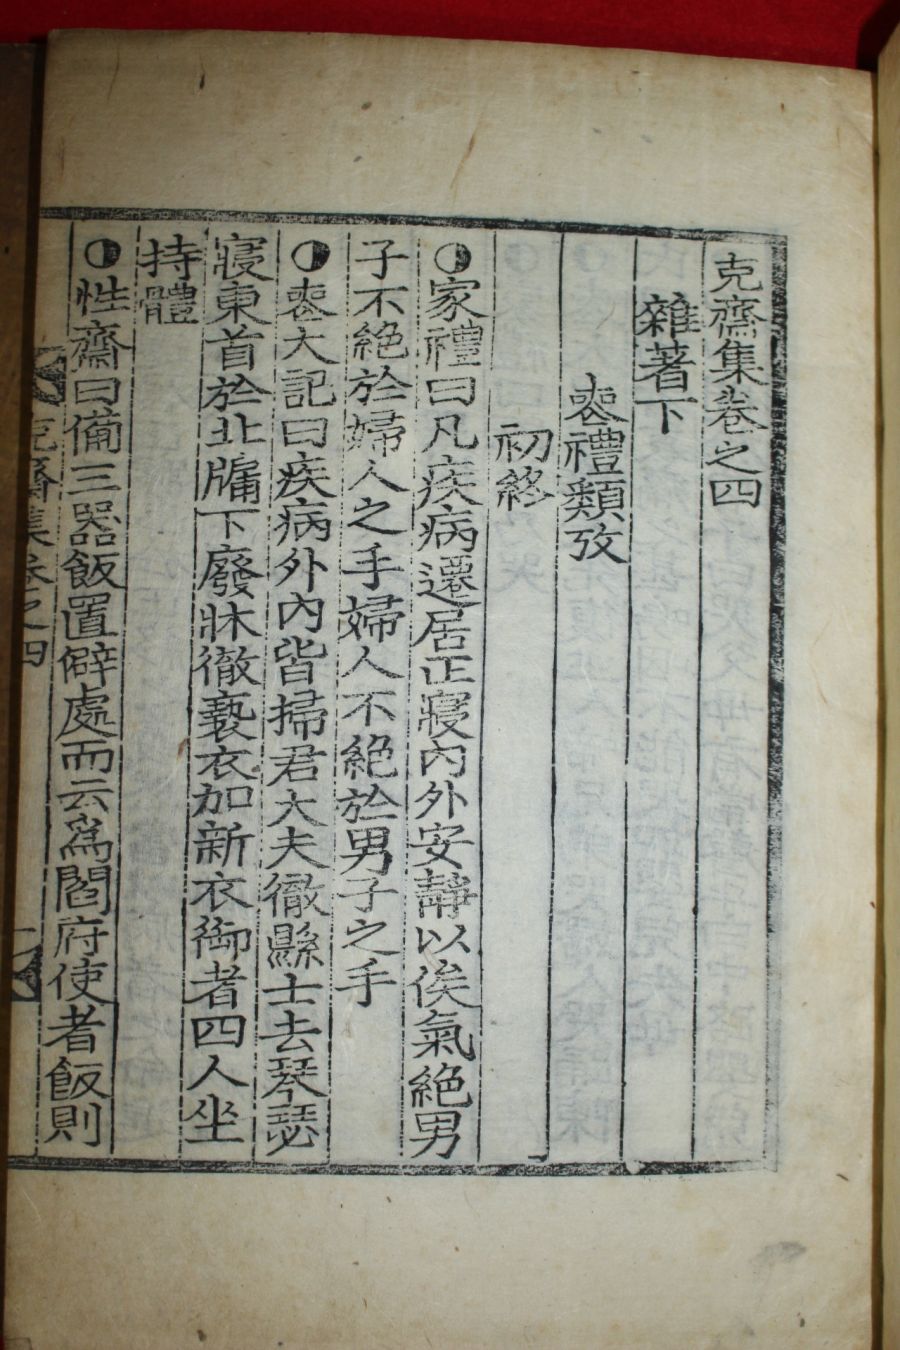 克齋集卷之四
雜著下
喪禮類攷
初終
◑家禮曰凡疾病遷居正寢內外安靜以俟氣絶男
子不絶於婦人之手婦人不絶於男子之手
◑喪大記曰疾病外內皆掃君大夫徹縣士去琴瑟
寢東首於北牖下廢牀徹褻衣加新衣御者四人坐
持體
◑性齋曰備三器飯置僻處而云爲閻府使者飯則
克齋集卷之四